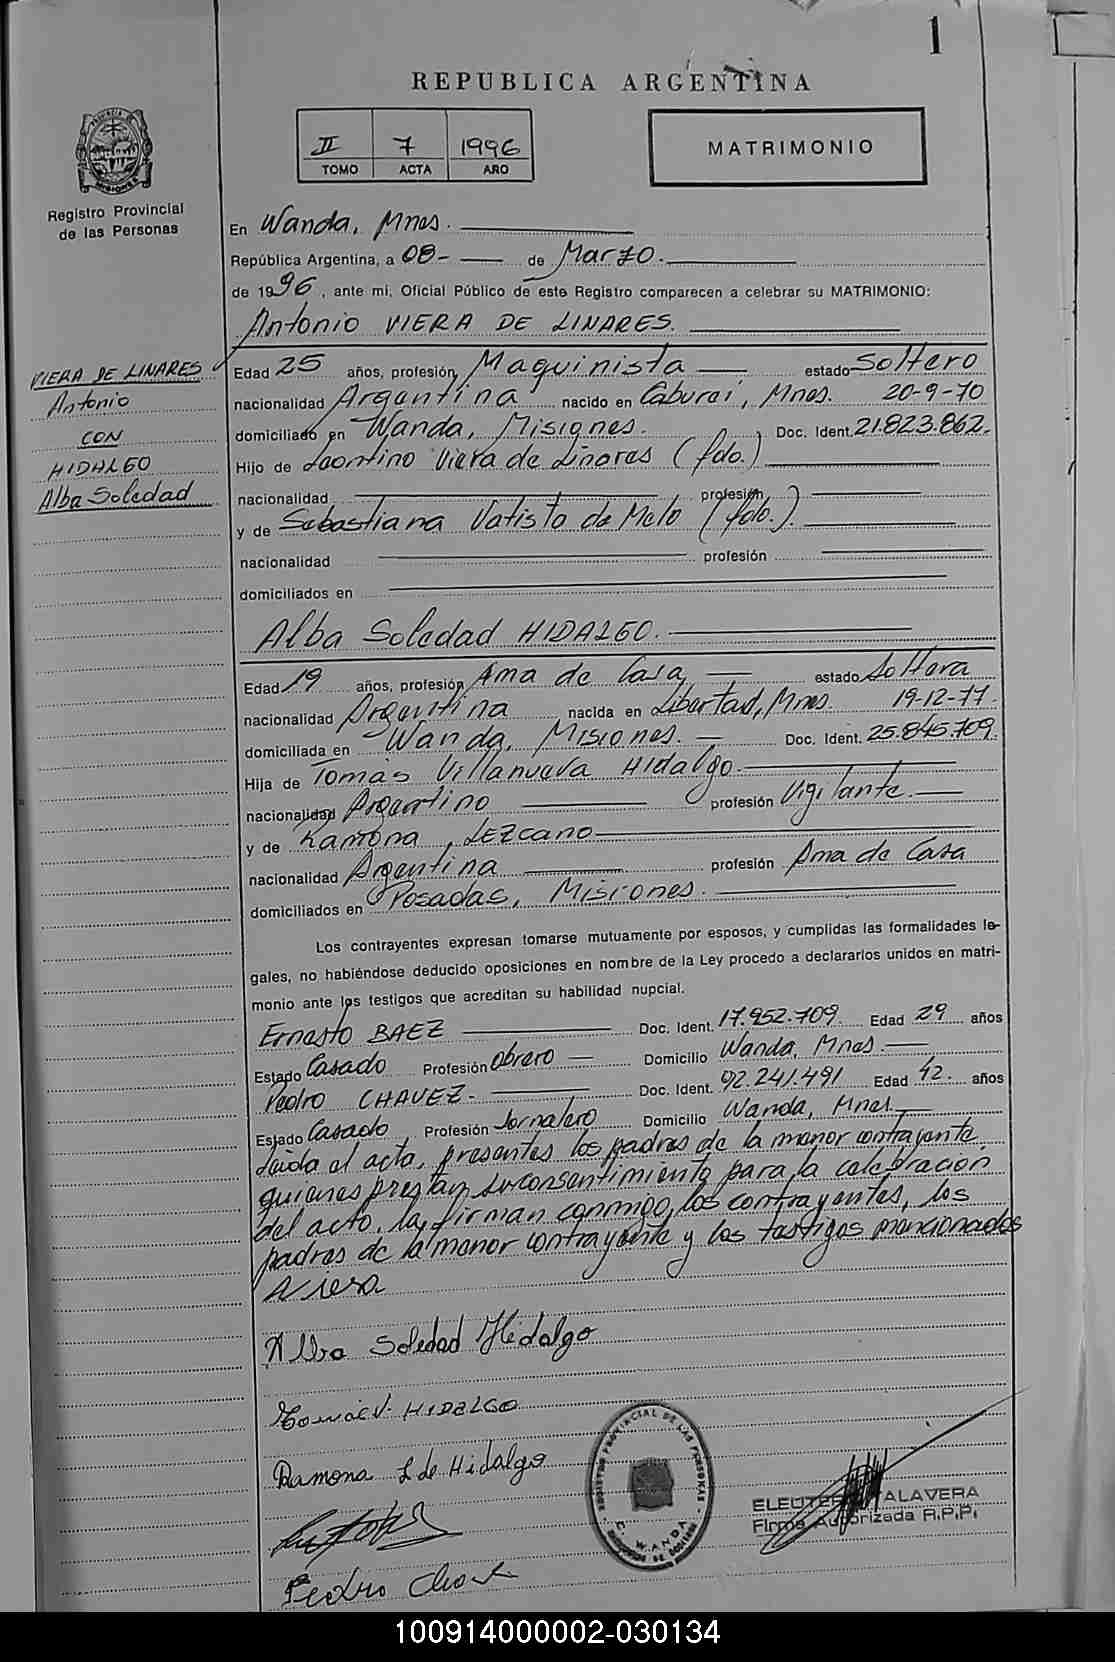 1
REPUBLICA ARGENTINA
II 7 1996
TOMO ACTA AÑO
MATRIMONIO
Registro Provincial
de las Personas
En Wanda, Mnes.
República Argentina, a 08- de Marzo.
de 1996, ante mi, Oficial Público de este Registro comparecen a celebrar su MATRIMONIO:
Antonio VIERA DE LINARES.
VIERA DE LINARES
Antonio
CON
HIDALGO
Alba Soledad
Edad 25 años, profesión, Maquinista estado Soltero
nacionalidad Argentina nacido en Caburei, Mnes. 20-9-70
domiciliado en Wanda, Misiones. Doc. Ident. 21.823.862.
Hijo de Leontino Viera de Linares (fdo.)
nacionalidad profesión,
y de Sebastiana Vatisto de Melo (fdo.).
nacionalidad profesión
domiciliados en
Alba Soledad HIDALGO.
Edad 19 años, profesión Ama de Casa, estado Soltera
nacionalidad Argentina nacida en Libertad, Mnes. 19-12-77.
domiciliada en Wanda, Misiones. Doc. Ident. 25.845.709.
Hija de Tomás Villanueva Hidalgo.
nacionalidad Argentino profesión Vigilante.
y de Ramona, LEZCANO
nacionalidad Argentina profesión Ama de Casa
domiciliados en Posadas, Misiones.
Los contrayentes expresan tomarse mutuamente por esposos, y cumplidas las formalidades le-
gales, no habiéndose deducido oposiciones en nombre de la Ley procedo a declararlos unidos en matri-
monio ante los testigos que acreditan su habilidad nupcial.
Ernesto BAEZ Doc. Ident. 17.952.709. Edad 29 años
Estado Casado Profesión Obrero Domicilio Wanda, Mnes.
Pedro CHAVEZ. Doc. Ident. 92.241.491 Edad 42. años
Estado Casado Profesión Jornalero Domicilio Wanda, Mnes.
Leida el acta, presentes los padres de la menor contrayente
quienes prestan su consentimiento para la celebración
del acto, la firman conmigo, los contrayentes, los
padres de la menor contrayente y los testigos mencionados
Alba Soledad Hidalgo
Tomás V. HIDALGO
Ramona L de Hidalgo
Pedro
REGISTRO PROVINCIAL DE LAS PERSONAS
WANDA
TALAVERA
Firma Autorizada R.P.P.
100914000002-030134